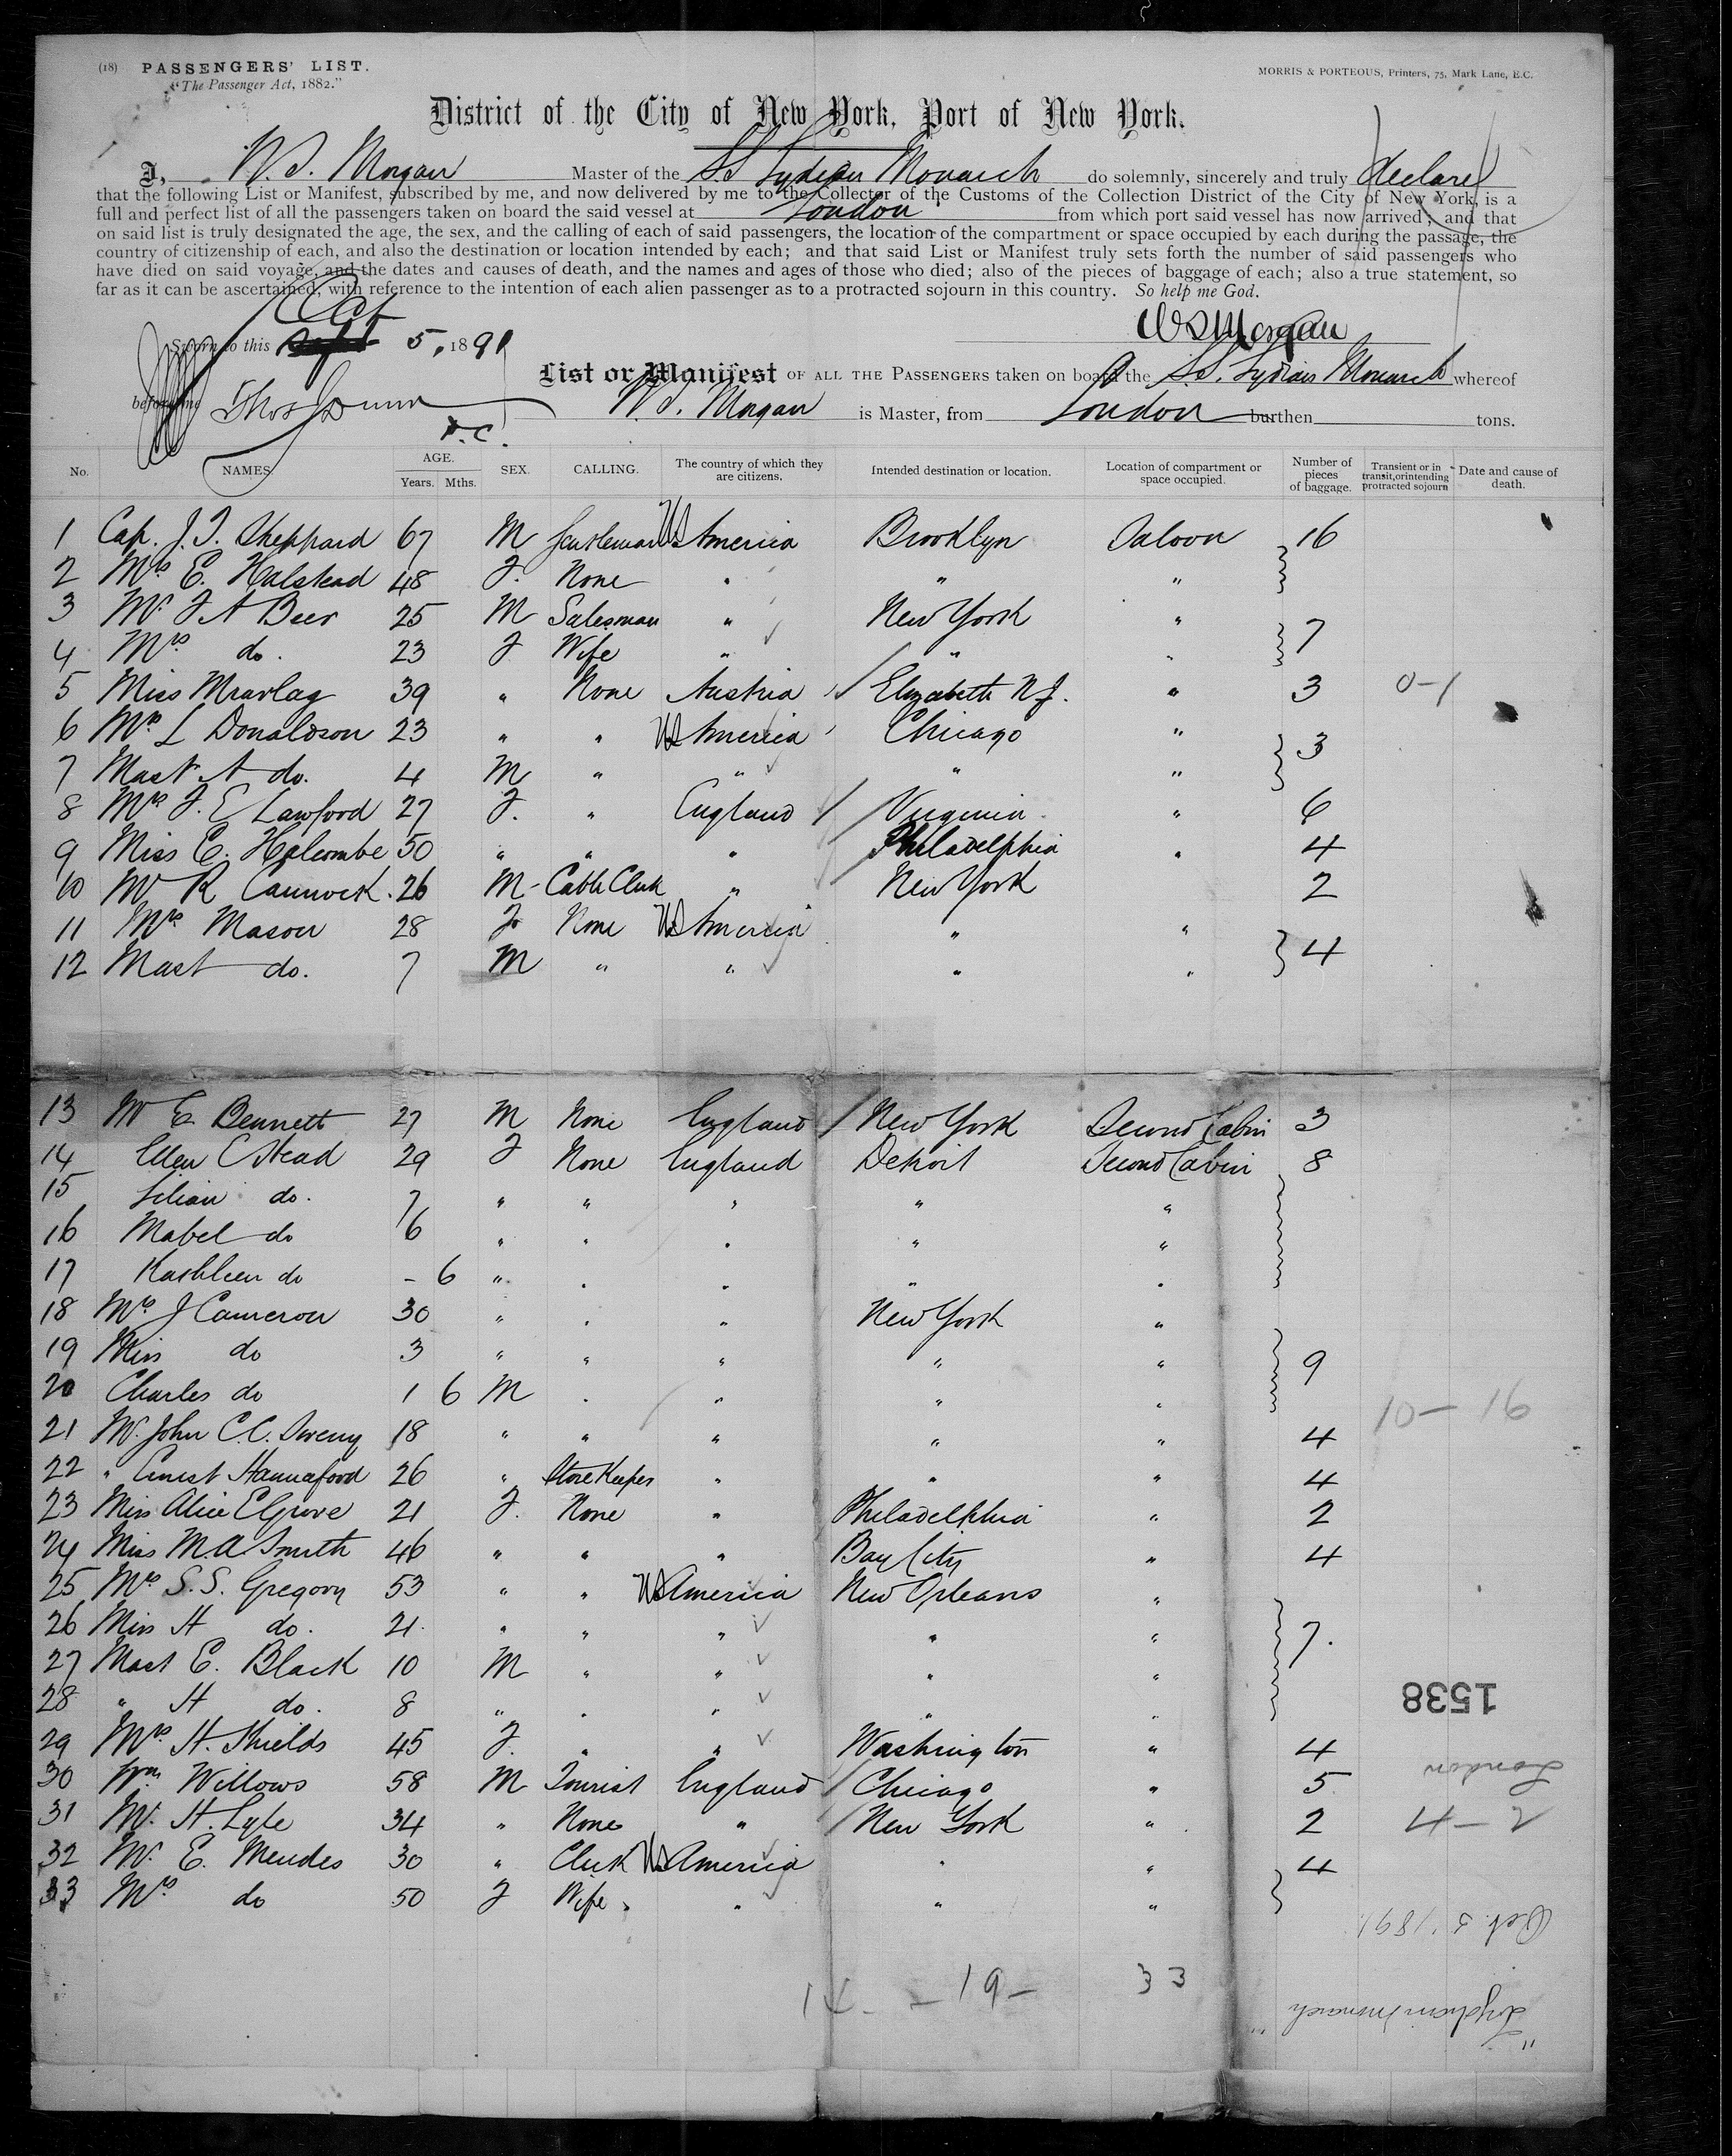 (18) PASSENGERS' LIST.
"The Passenger Act, 1882."
MORRIS & PORTEOUS, Printers, 75, Mark Lane, E.C.
District of the City of New York, Port of New York.
I, W. S. Morgan Master of the SS Lydian Monarch do solemnly, sincerely and truly declare
that the following List or Manifest, subscribed by me, and now delivered by me to the Collector of the Customs of the Collection District of the City of New York, is a
full and perfect list of all the passengers taken on board the said vessel at London from which port said vessel has now arrived; and that
on said list is truly designated the age, the sex, and the calling of each of said passengers, the location of the compartment or space occupied by each during the passage, the
country of citizenship of each, and also the destination or location intended by each; and that said List or Manifest truly sets forth the number of said passengers who
have died on said voyage, and the dates and causes of death, and the names and ages of those who died; also of the pieces of baggage of each; also a true statement, so
far as it can be ascertained, with reference to the intention of each alien passenger as to a protracted sojourn in this country. So help me God.
W S Morgan
Oct
Sworn to this 5, 1891
before me Thos Dunn
D.C.
List or Manifest OF ALL THE PASSENGERS taken on board the S.S. Lydian Monarch whereof
W. S. Morgan is Master, from London burthen tons.
No. NAMES. AGE. Years. Mths. SEX. CALLING. The country of which they are citizens. Intended destination or location. Location of compartment or space occupied. Number of pieces of baggage. Transient or in transit, or intending protracted sojourn Date and cause of death.
1 Cap. J. T. Sheppard 67 M Gentleman US America Brooklyn Saloon 16
2 Mrs E. Halstead 48 F. None " " "
3 Mr F A Beer 25 M Salesman " New York "
4 Mrs do. 23 F Wife " " " 7
5 Miss Mravlag 39 " None Austria Elizabeth N.J. " 3 0-1
6 Mrs L Donaldson 23 " " US America Chicago " 3
7 Mast A do. 4 M " " " "
8 Mrs F. E Lawford 27 F. " England Virginia " 6
9 Miss E. Holcombe 50 " " " Philadelphia " 4
10 Mr R Cannock 26 M Cable Clerk " New York 2
11 Mrs Mason 28 F None US America " "
12 Mast do. 7 M " " " " 4
13 Mr E. Bennett 27 M None England New York Second Cabin 3
14 Ellen C Stead 29 F None England Detroit Second Cabin 8
15 Lilian do. 7 " " " " "
16 Mabel do 6 " " " " "
17 Kathleen do - 6 " " " " "
18 Mrs J Cameron 30 " " " New York "
19 Miss do 3 " " " " " 9
20 Charles do 1 6 M " " " "
10-16
21 Mr. John C. C. Sweny 18 " " " " " 4
22 " Ernest Hannaford 26 " Store Keeper " " " 4
23 Miss Alice E Grove 21 F. None " Philadelphia " 2
24 Miss M. A. Smith 46 " " " Bay City " 4
25 Mrs S. S. Gregory 53 " " US America New Orleans "
26 Miss H do. 21. " " " " " 7.
27 Mast E. Black 10 M " " " "
28 " H do. 8 " " " " "
1538
29 Mrs H. Shields 45 F. " " Washington " 4
30 Wm Willows 58 M Tourist England Chicago " 5
London
31 Mr. H. Lyle 34 " None " New York " 2
2-4
32 Mr. E. Mendes 30 " Clerk US America " " 4
33 Mrs do 50 F Wife " " "
Oct. 5. 1891
14 - 19 - 33
"Lydian Monarch"